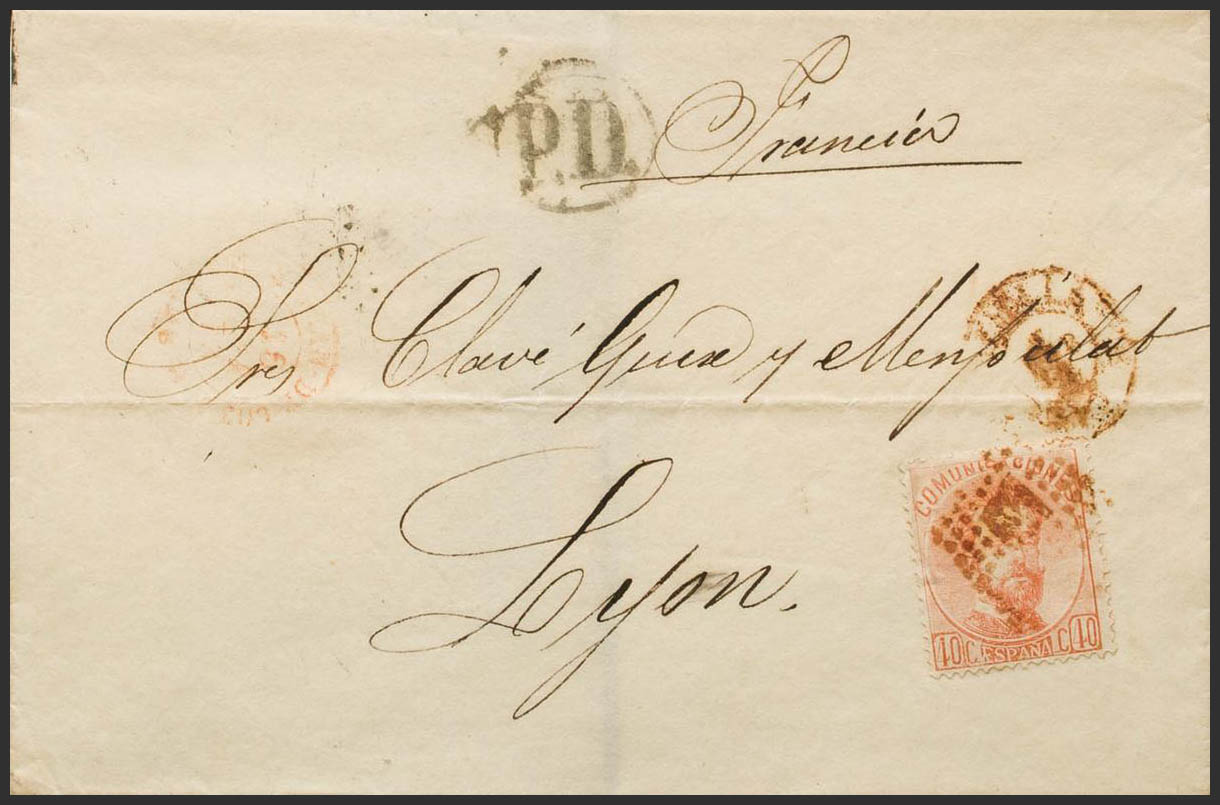 P.D.
Francia
Sres Clavé Guex y Monfoulat
Lyon.
COMUNICACIONES
40 C. ESPAÑA C 40